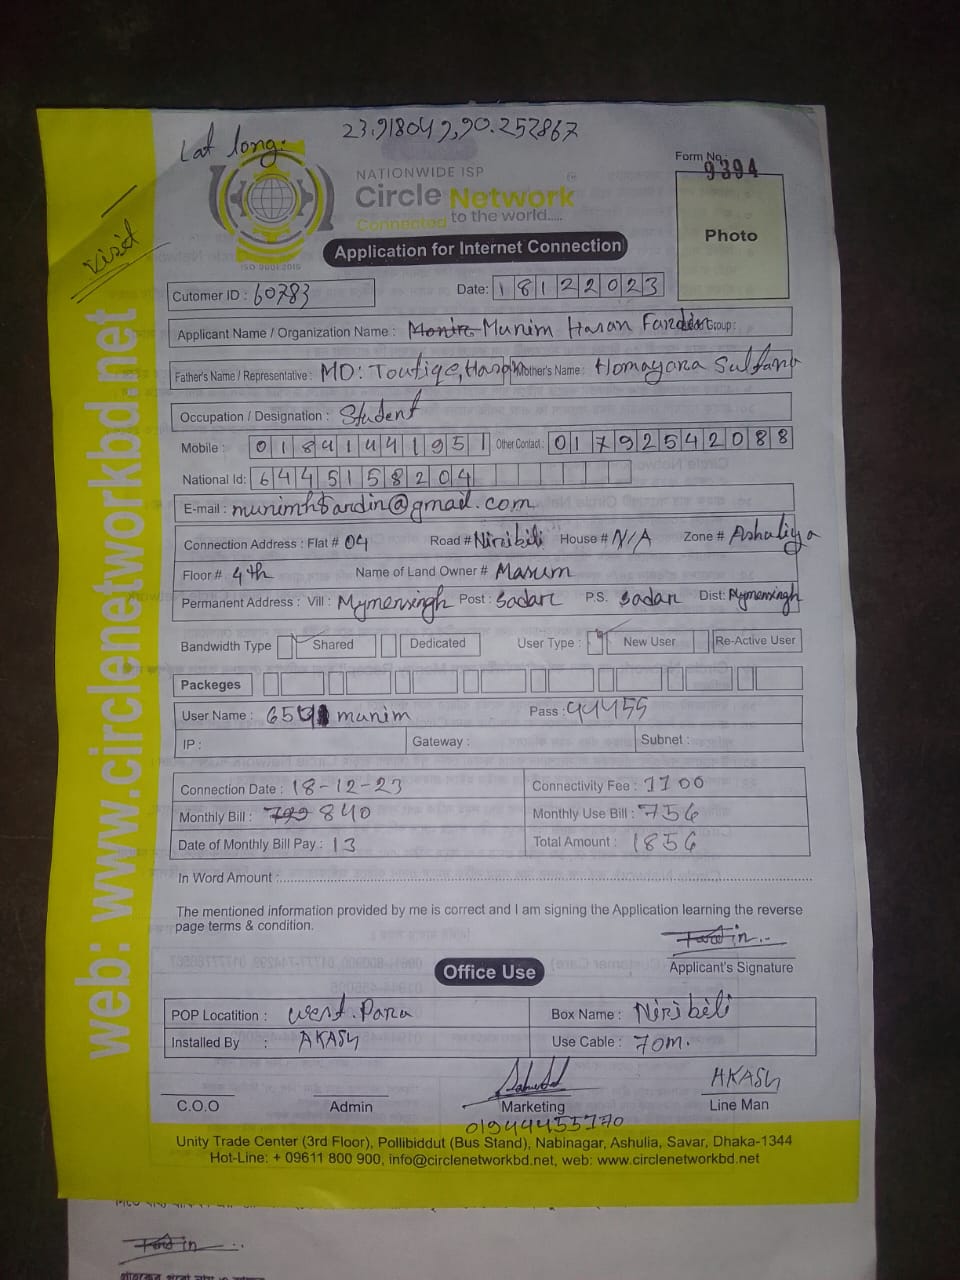 Lat long: 23.918049,90.252867
Visit
NATIONWIDE ISP
Circle Network
Connected to the world.....
ISO 9001:2015
Form No.: 9394
Photo
Application for Internet Connection
Cutomer ID : 60783
Date: 18122023
Applicant Name / Organization Name : Munim Hasan Fardin Group :
Father's Name / Representative : MD: Toufiqe, Hasan Mother's Name : Homayana Sultana
Occupation / Designation : Student
Mobile : 01841441951 Other Contact : 01792542088
National Id: 6445158204
E-mail : munimhfardin@gmail.com
Connection Address : Flat # 04 Road # Niribili House # N/A Zone # Ashuliya
Floor # 4th Name of Land Owner # Masum
Permanent Address : Vill : Mymensingh Post : Sadar P.S. Sadar Dist: Mymensingh
Bandwidth Type Shared Dedicated User Type : New User Re-Active User
Packeges
User Name : munim Pass : 44455
IP : Gateway : Subnet :
Connection Date : 18-12-23 Connectivity Fee : 1100
Monthly Bill : 799 840 Monthly Use Bill : 756
Date of Monthly Bill Pay : 13 Total Amount : 1856
In Word Amount :
The mentioned information provided by me is correct and I am signing the Application learning the reverse
page terms & condition.
Fardin
Applicant's Signature
Office Use
POP Locatition : West Para Box Name : Niribili
Installed By : AKASH Use Cable : 70m.
AKASH
C.O.O Admin Marketing Line Man
01944455170
Unity Trade Center (3rd Floor), Pollibiddut (Bus Stand), Nabinagar, Ashulia, Savar, Dhaka-1344
Hot-Line: + 09611 800 900, info@circlenetworkbd.net, web: www.circlenetworkbd.net
web: www.circlenetworkbd.net
Fardin